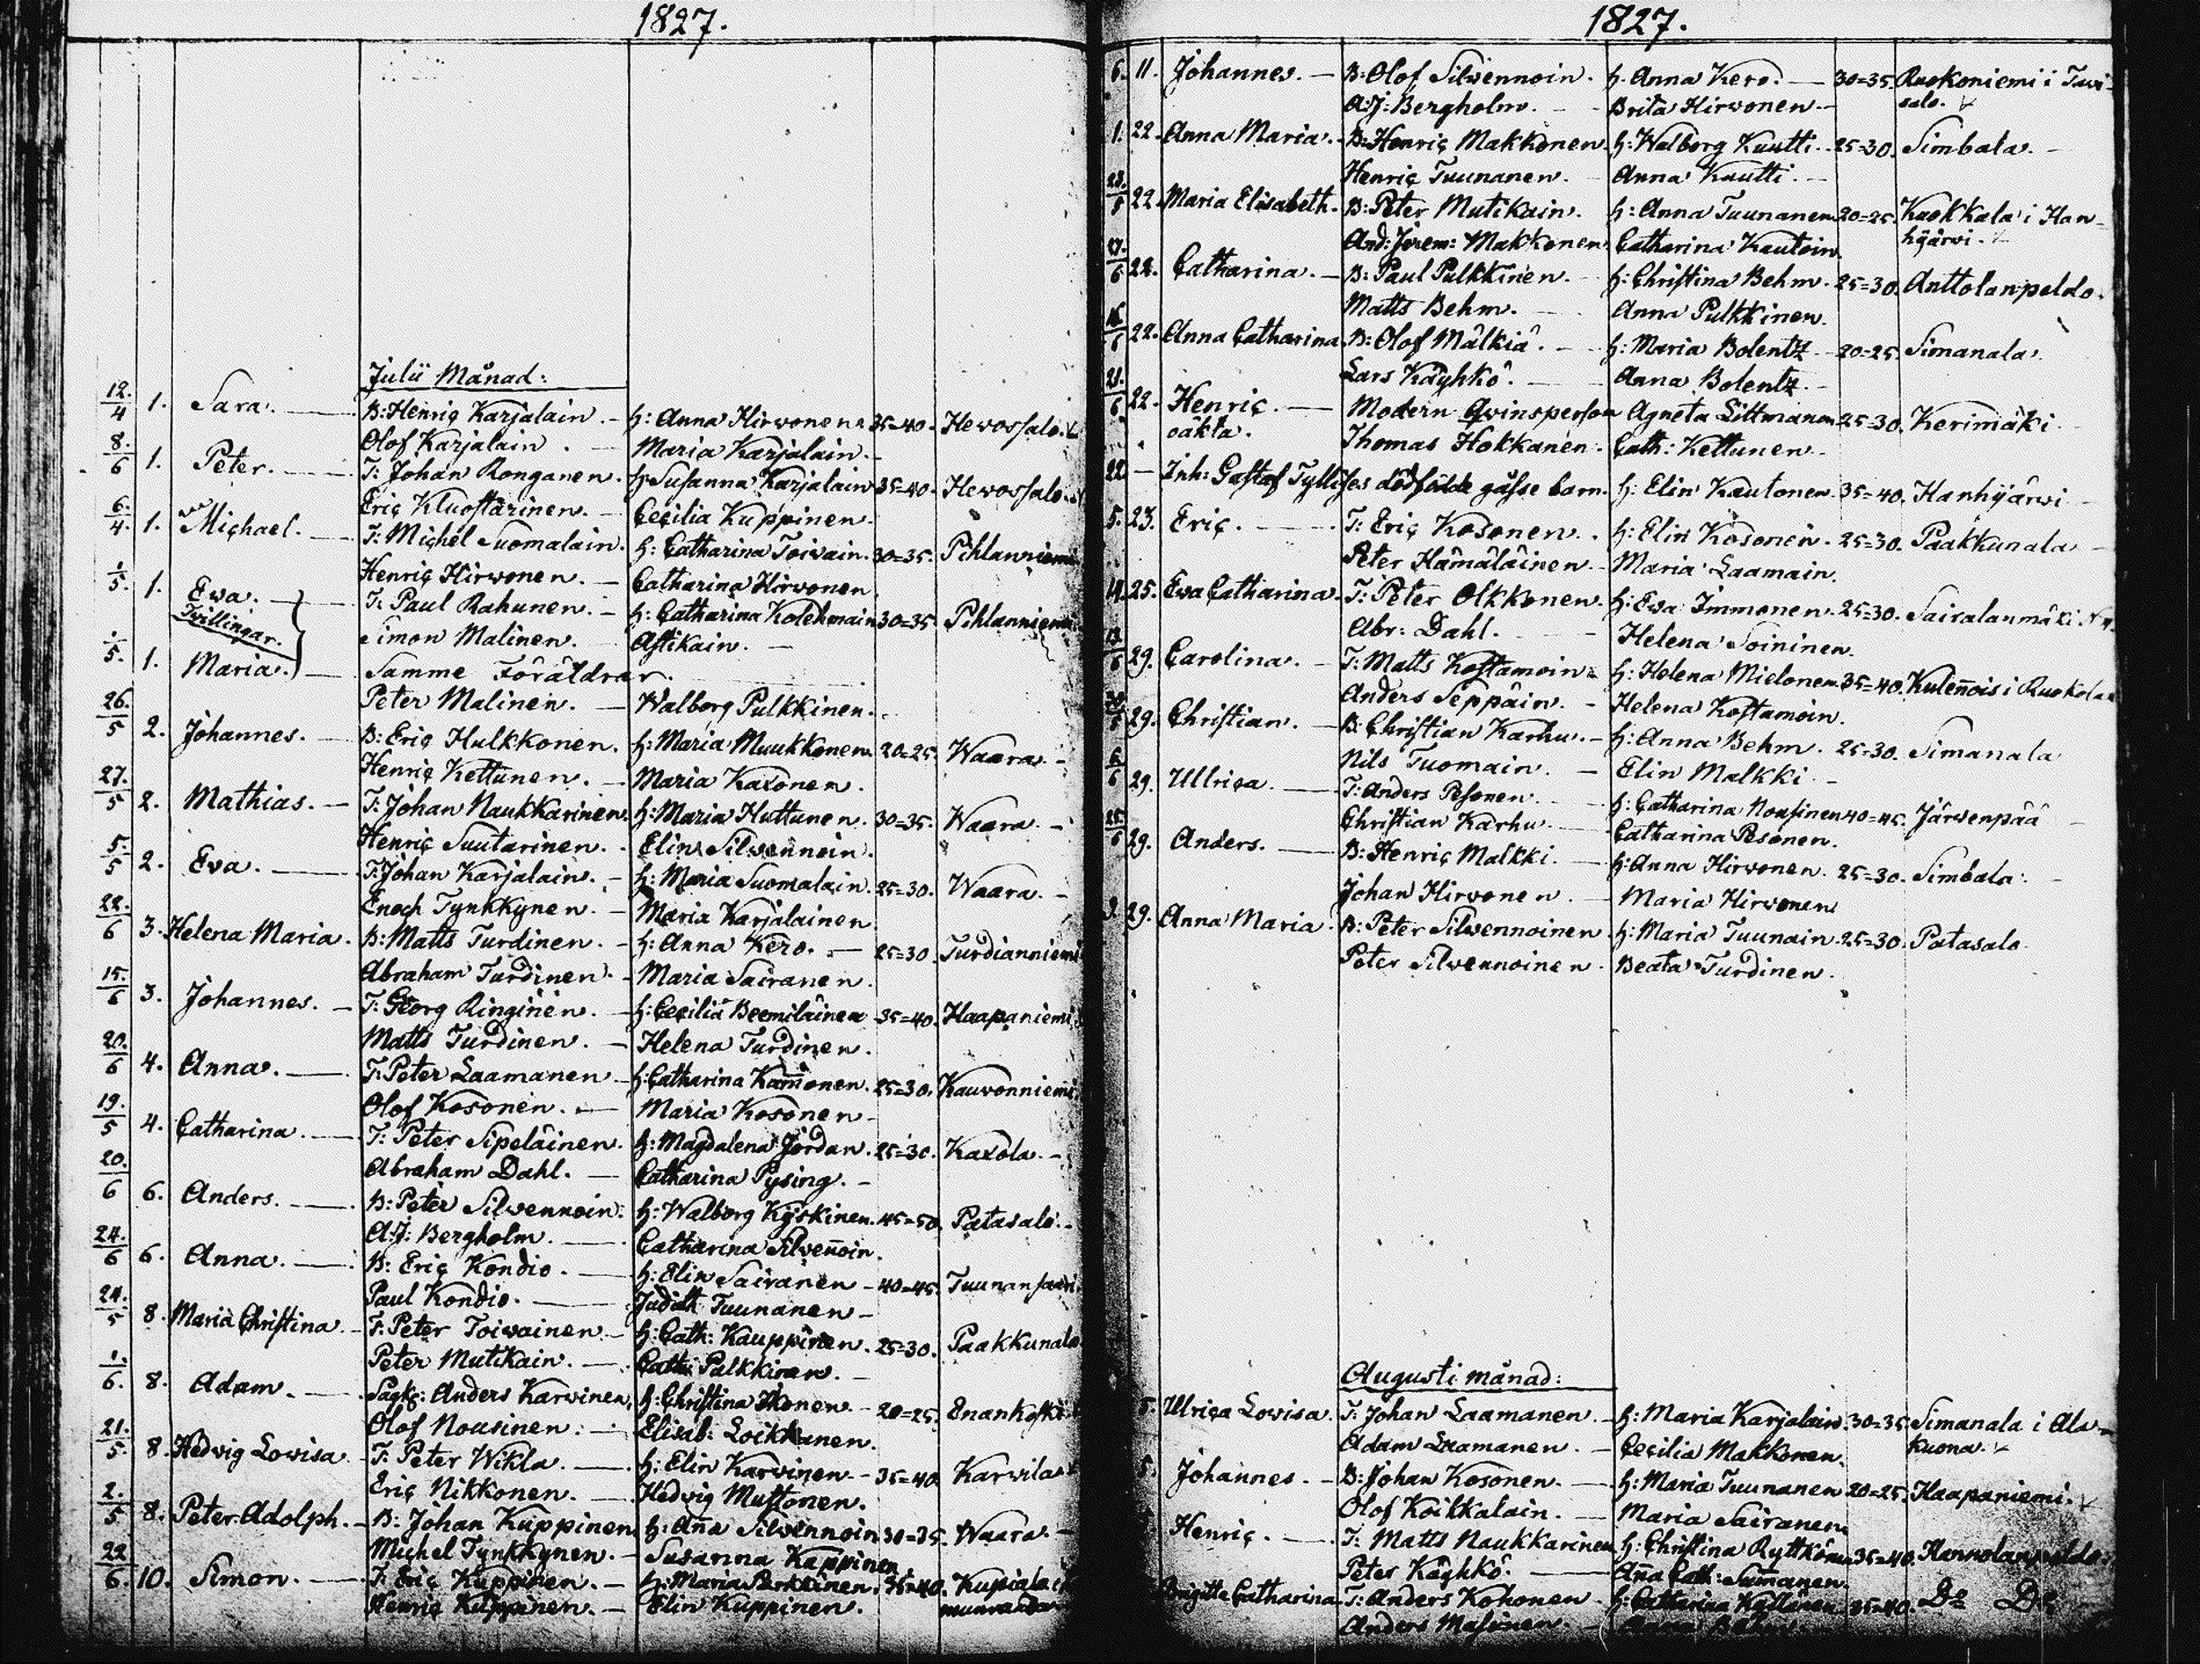 1827.
Julii Månad:
12/4 1. Sara. B: Henric Karjalain. h: Anna Hirwonen. 35=40. Hevossalo.
Olof Karjalain. Maria Karjalain.
8/6 1. Peter. T: Johan Ronganen. h: Susanna Karjalain 35=40. Hevossalo.
Eric Kluostarinen. Cecilia Kuppinen.
6/4. 1. Michael. T: Michel Suomalain. h: Catharina Toivain. 30=35. Pihlanniemi
Henric Hirwonen. Catharina Hirwonen
1/5. 1. Eva. T: Paul Rahunen. h: Catharina Kolehmain 30=35. Pihlanniemi
Tvillingar. Simon Malinen. Astikain.
1/5. 1. Maria. Samme Föräldrar.
Peter Malinen. Walborg Pulkkinen.
26/5 2. Johannes. B: Eric Hulkkonen. h: Maria Muukkonen 20=25. Waara.
Henric Kettunen. Maria Kaxonen.
27/5 2. Mathias. T: Johan Naukkarinen. h: Maria Huttunen. 30=35. Waara.
Henric Suutarinen. Elin Silwennoin.
5/5 2. Eva. T: Johan Karjalain. h: Maria Suomalain. 25=30. Waara.
Enoch Tynkkynen. Maria Karjalainen
22/6 3. Helena Maria. B: Matts Turdinen. h: Anna Kero. 25=30. Turdianniemi
Abraham Turdinen. Maria Sairanen.
15/6 3. Johannes. T: Georg Ringinen. h: Cecilia Beemiläinen 35=40. Haapaniemi
Matts Turdinen. Helena Turdinen.
20/6 4. Anna. T: Peter Laamanen h: Catharina Kam̄onen. 25=30. Kauvonniemi
Olof Kosonen. Maria Kosonen
19/5 4. Catharina. T: Peter Sipeläinen. h: Magdalena Jordan. 25=30. Kaxola.
Abraham Dahl. Catharina Pysing.
20/6 6. Anders. B: Peter Silwennoin. h: Walborg Kyskinen. 45=50. Patasalo.
A:J: Bergholm. Catharina Silwen̄oin.
24/6 6. Anna. B: Eric Kondio. h: Elin Sairanen 40=45. Tuunansaari
Paul Kondio. Judith Tuunanen
24/5 8. Maria Christina T: Peter Toivainen. h: Cath: Kauppinen. 25=30. Paakkunala
Peter Mutikain. Cath: Pulkkinen.
1/6. 8. Adam. Anders Karwinen, h: Christina Ikonen. 20=25.
Olof Nousinen: Elisab: Loikkanen.
21/5. 8. Hedvig Lovisa T: Peter Wikla. h: Elin Karvinen 35=40. Karvila
Eric Nikkonen. Hedvig Mustonen.
2/5 8. Peter Adolph. B: Johan Kuppinen. h: An̄a Silwennoin 30=35. Waara.
Michel Tynkkynen. Susanna Kuppinen
22/6. 10. Simon. T: Eric Kuppinen. h: Maria Parkkinen. 35=40. Kupiala i
Henric Kuppinen. Elin Kuppinen.
1827.
6. 11. Johannes. B: Olof Silwennoin. h. Anna Kero. 30=35. Ruokoniemi i Tavi-
A:J: Bergholm. Brita Hirwonen salo.
1. 22. Anna Maria. B: Henric Makkonen h: Walborg Kuutti. 25=30. Simbala.
Henric Tuunanen. Anna Kuutti.
23/5 22. Maria Elisabeth. B: Peter Mutikain. h: Anna Tuunanen 20=25. Kuokkala i Han-
And: Jerem: Makkonen Catharina Kautoin hyärvi.
17/6 22. Catharina. B: Paul Pulkkinen. h: Christina Behm. 25=30. Anttolanpeldo.
Matts Behm. Anna Pulkkinen.
16/6 22. Anna Catharina B: Olof Mälkiä. h: Maria Bolentz 20=25. Simanala.
Lars Käyhkö. Anna Bolentz.
21/6 22. Henric. Modern Qvinsperson Agneta Littmanen 25=30. Kerimäki
oäkta. Thomas Hokkanen. Cath: Kettunen
22 Inh: Gustaf Tylli ses dödfödde gåsse barn. h: Elin Kautonen. 35=40. Hanhijärvi
5. 23. Eric. T: Eric Kosonen. h: Elin Kosonen. 25=30. Paakkunala
Peter Hämäläinen Maria Laamain.
14. 25. Eva Catharina. T: Peter Olkkonen. h: Eva Immonen 25=30. Sairalanmäki
Abr: Dahl. Helena Soininen.
13/6 29. Carolina. T: Matts Kostamoin h: Helena Mielonen 35=40. Kulen̄ois i Ruokola
Anders Seppäin. Helena Kostamoin.
29. Christian. B: Christian Karhu. h: Anna Behm. 25=30. Simanala
Nils Tuomain. Elin Malkki
6/6 29. Ullrica. T: Anders Pesonen. h: Catharina Nousinen 40=45. Järvenpää
Christian Karhu. Catharina Pesonen.
25/6 29. Anders. B: Henric Malkki. h: Anna Hirvonen. 25=30. Simbala.
Johan Hirvonen. Maria Hirvonen
9. 29. Anna Maria B: Peter Silwennoinen h: Maria Tuunain. 25=30. Patasalo.
Peter Silwennoinen. Beata Turdinen.
Augusti månad:
5. Ulrica Lovisa. T: Johan Laamanen. h: Maria Karjalain. 30=35. Simanala i Ala-
Adam Laamanen. Cecilia Makkonen. kuona.
5. Johannes. B: Johan Kosonen. h: Maria Tuunanen 20=25. Haapaniemi.
Olof Koikkalain. Maria Sairanen
Henric. T: Matts Naukkarinen h: Christina Ryttkönen 35=40.
Peter Käyhkö. An̄a Cath: Sutmanen.
Brigitta Catharina T: Anders Kohonen h: Catharina 35=40. Do Do
Anders Masinen.